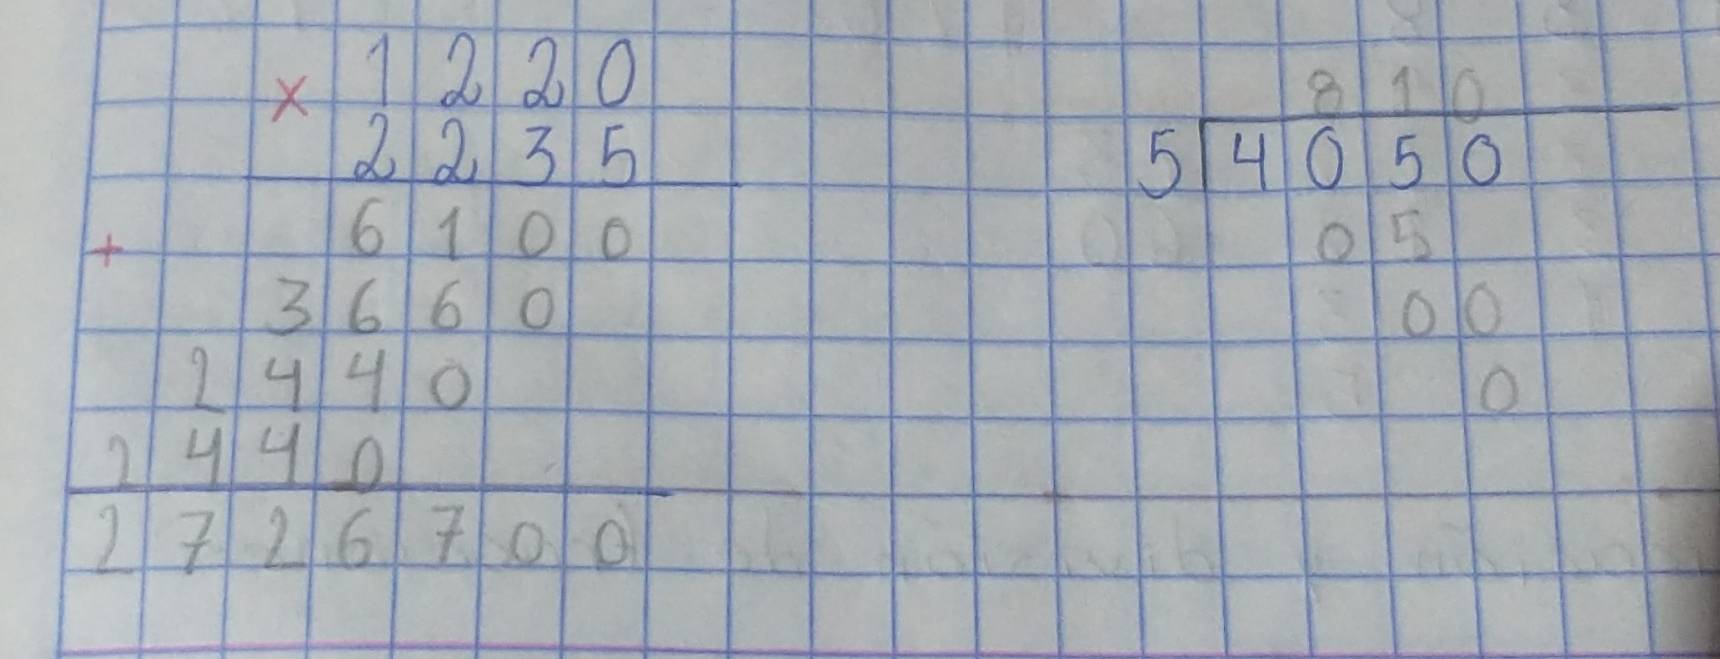 × 1220
2235
+ 6100
3660
2440
2440
2726700
810
5 4050
05
00
0